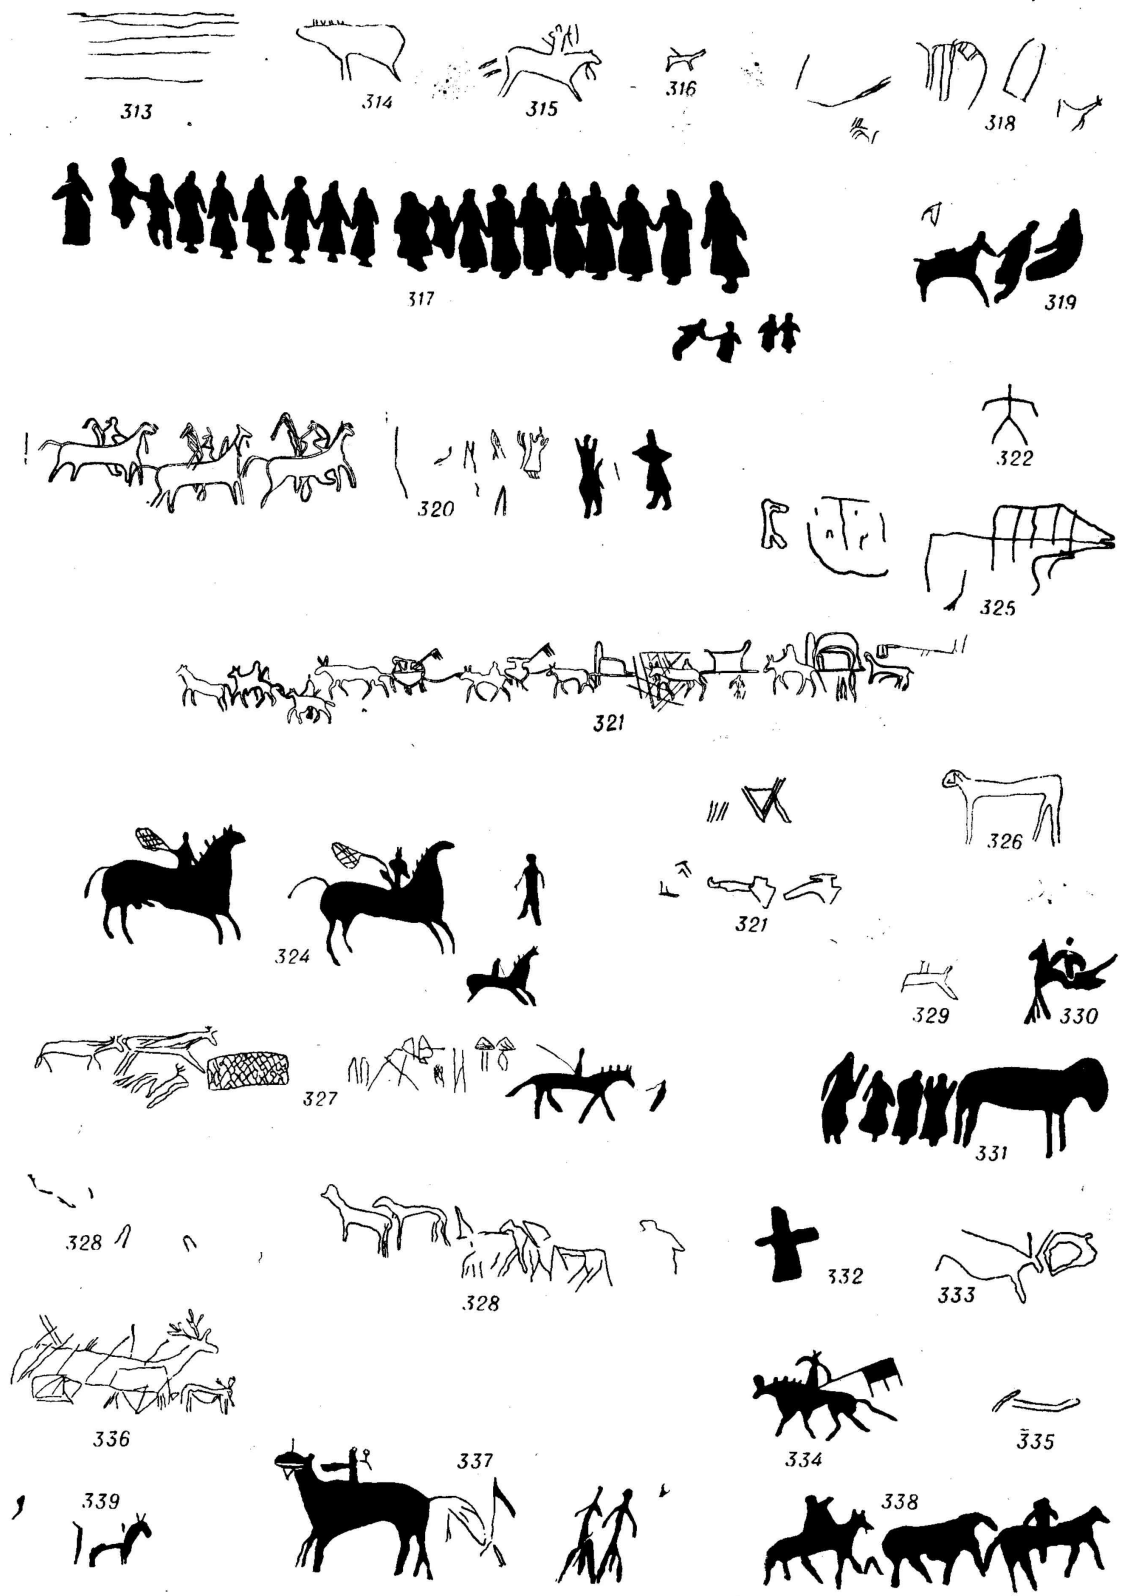 313
314
315
316
318
317
319
320
322
325
321
324
321
326
329
330
327
331
328
328
332
333
336
337
334
335
339
338